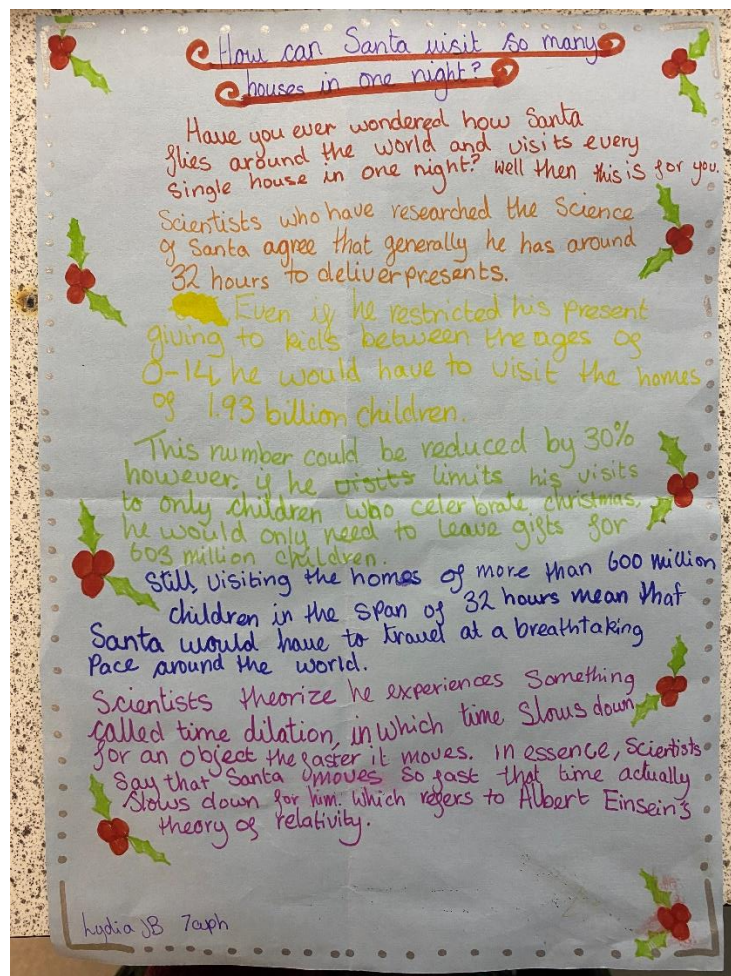 How can Santa visit so many
houses in one night?
Have you ever wondered how Santa
flies around the world and visits every
single house in one night? well then this is for you.
Scientists who have researched the Science
of Santa agree that generally he has around
32 hours to deliver presents.
Even if he restricted his present
giving to kids between the ages of
0-14, he would have to visit the homes
of 1.93 billion children.
This number could be reduced by 30%
however, if he visits limits his visits
to only children who celerbrate christmas,
he would only need to leave gifts for
603 million children.
Still, visiting the homes of more than 600 million
children in the span of 32 hours mean that
Santa would have to travel at a breathtaking
Pace around the world.
Scientists theorize he experiences Something
called time dilation, in which time slows down
for an object the faster it moves. in essence, Scientists
Say that Santa moves so fast that time actually
Slows down for him. Which refers to Albert Einsein's
theory of relativity.
Lydia JB 7cwph